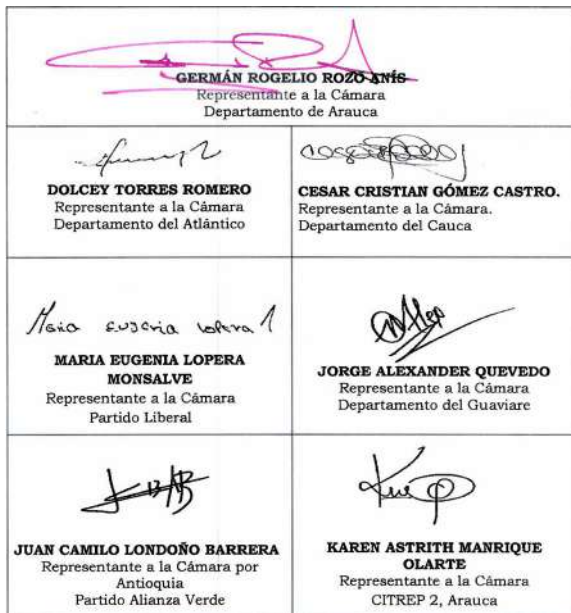 GERMÁN ROGELIO ROZO ANÍS
Representante a la Cámara
Departamento de Arauca
DOLCEY TORRES ROMERO
Representante a la Cámara
Departamento del Atlántico
CESAR CRISTIAN GÓMEZ CASTRO.
Representante a la Cámara.
Departamento del Cauca
Maria Eugenia Lopera
MARIA EUGENIA LOPERA
MONSALVE
Representante a la Cámara
Partido Liberal
JORGE ALEXANDER QUEVEDO
Representante a la Cámara
Departamento del Guaviare
JUAN CAMILO LONDOÑO BARRERA
Representante a la Cámara por
Antioquia
Partido Alianza Verde
KAREN ASTRITH MANRIQUE
OLARTE
Representante a la Cámara
CITREP 2, Arauca